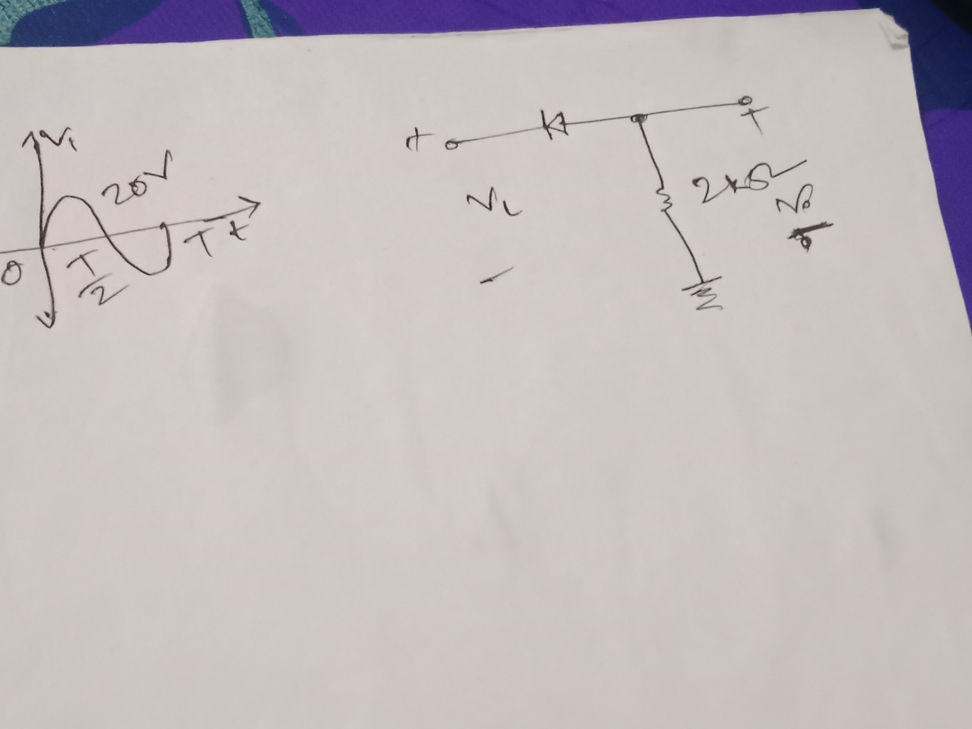 Vi
20V
0
T/2
T
t
+
+
Vi
2kΩ
Vo
-